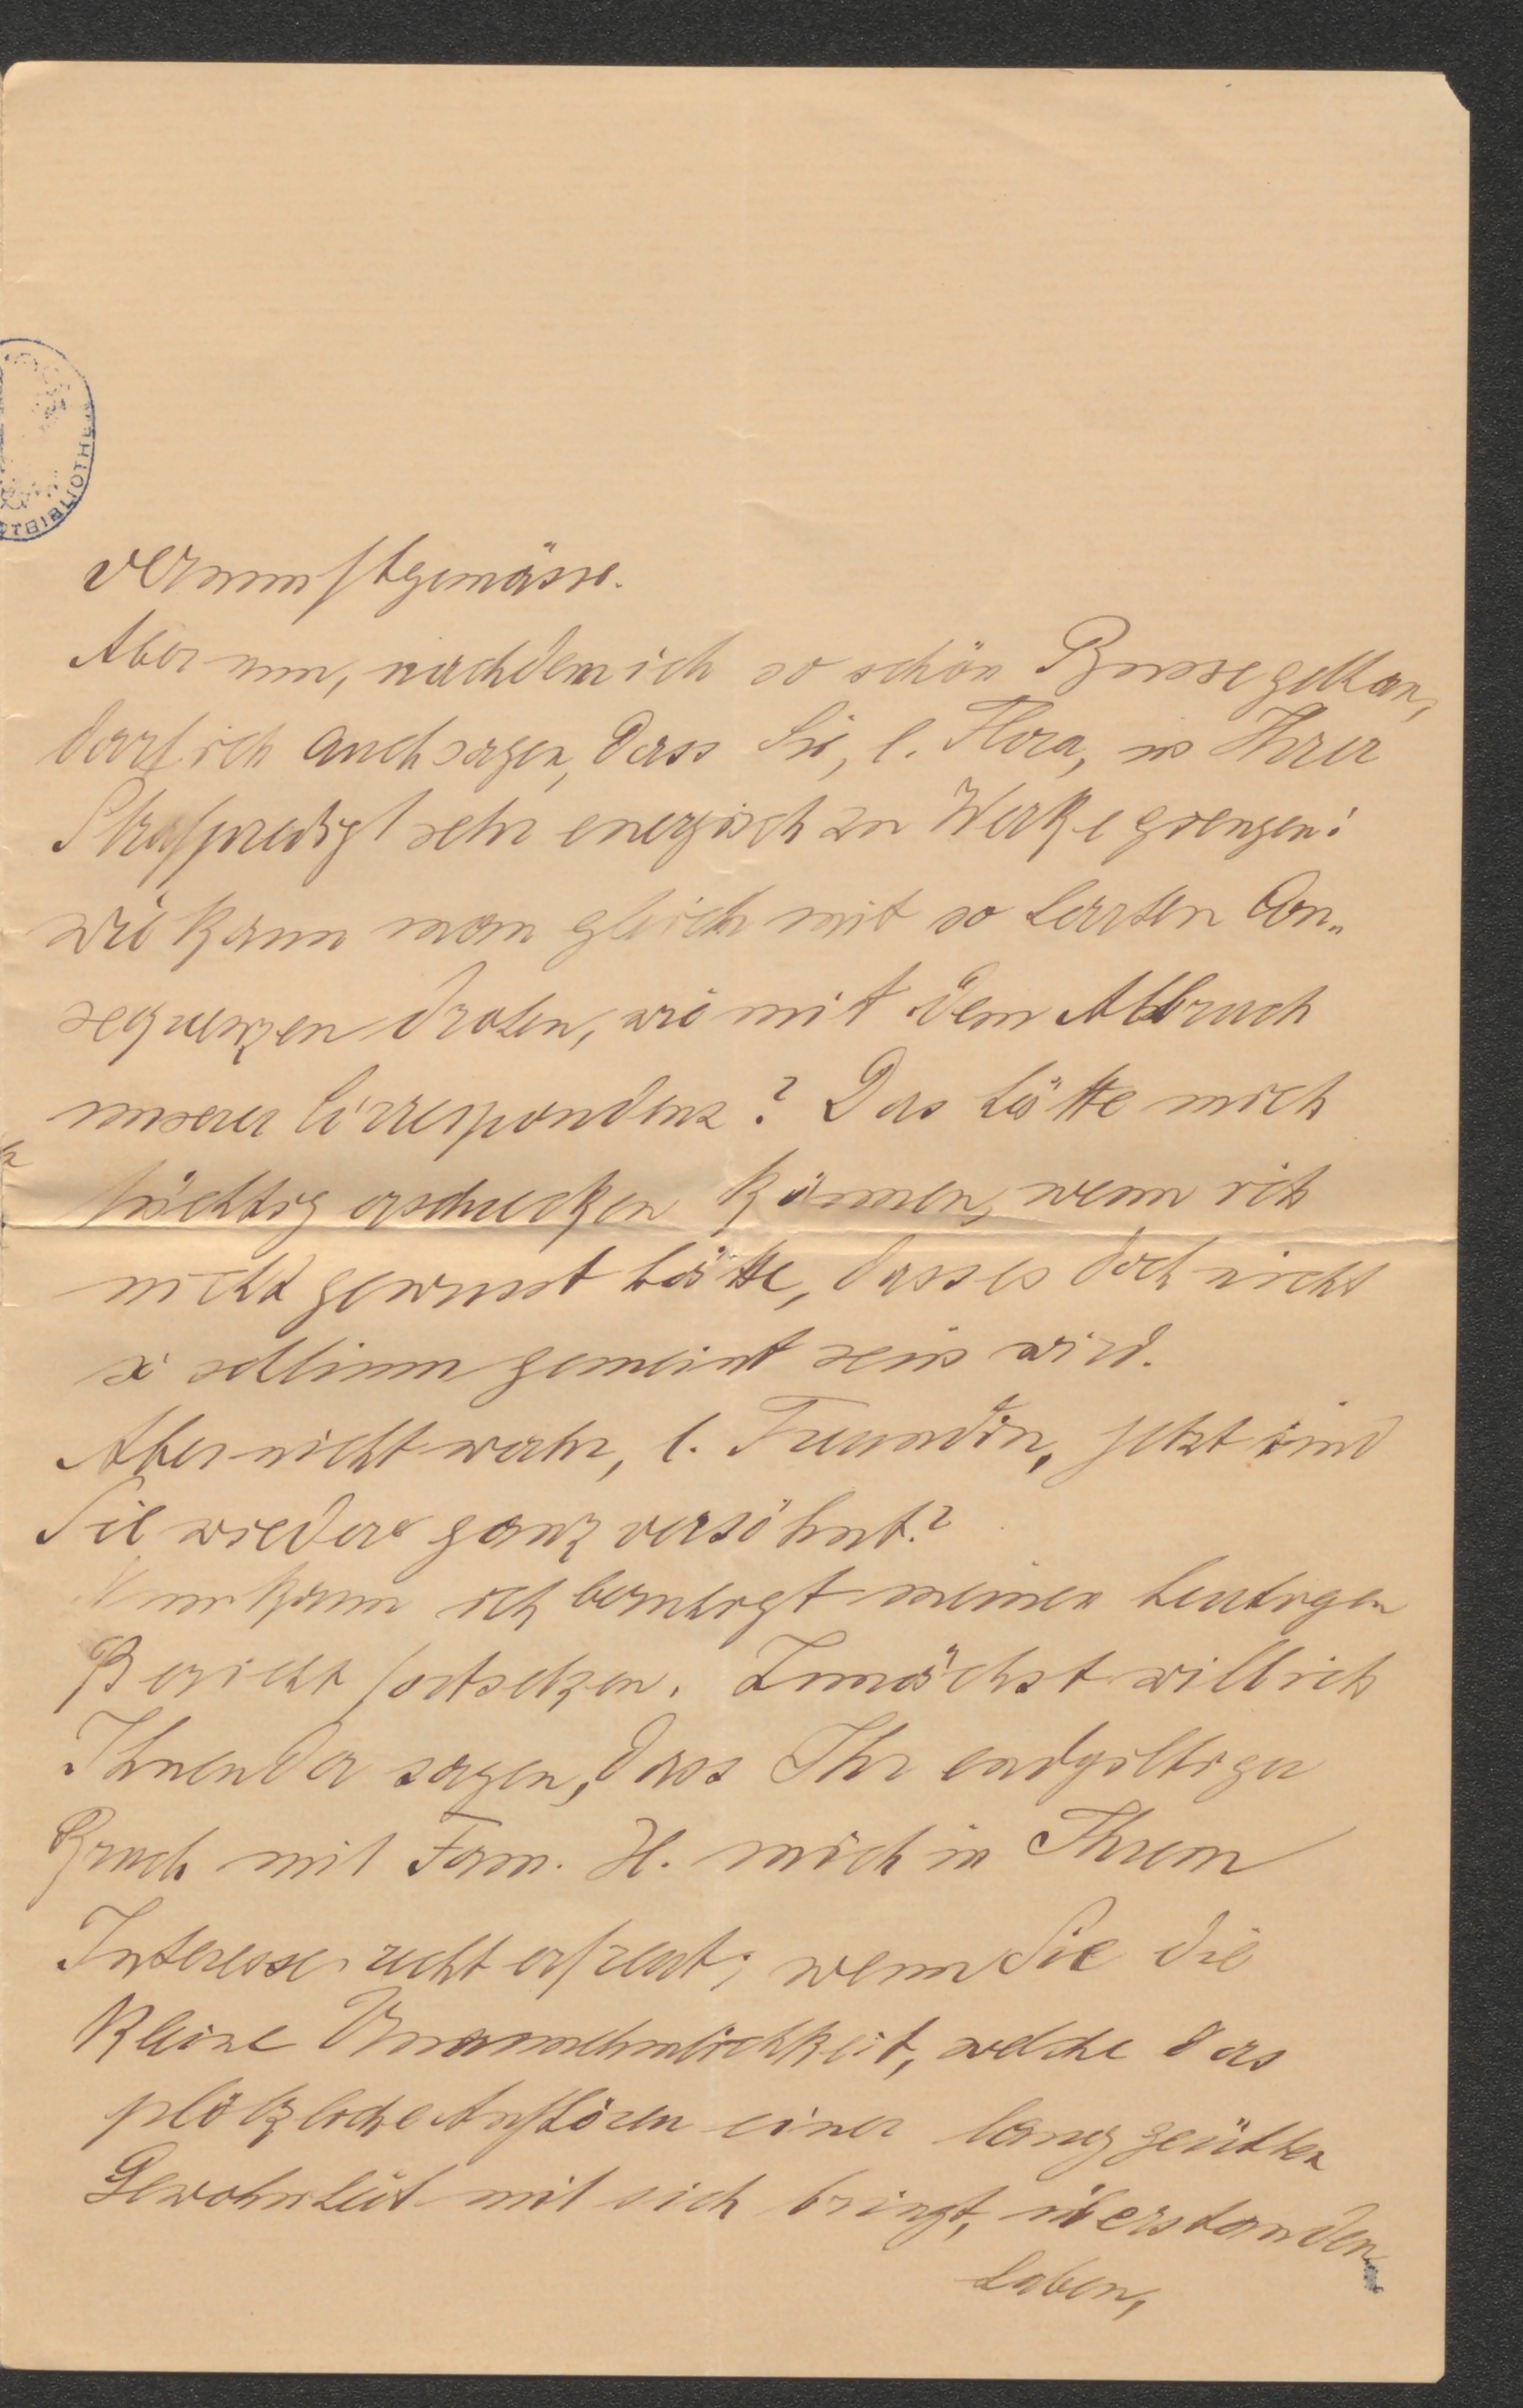 vernunftgemässe.
Aber nun, nachdem ich so schön Busse gethan,
darf ich auch sagen, dass Sie, l. Flora, in Ihrer
Strafpredigt sehr energisch zu Werke giengen:
wie kann man gleich mit so harten Con„
sequenzen drohen, wie mit dem Abbruch
unserer Correspondenz? Das hätte mich
tüchtig erschrecken können, wenn ich
nicht gewusst hätte, dass es doch nicht
so schlimm gemeint sein wird.
Aber nicht wahr, l. Freundin, jetzt sind
Sie wieder ganz versöhnt?
Nun kann ich beruhigt meinen heutigen
Bericht fortsetzen. Zunächst will ich
Ihnen da sagen, dass Ihr endgiltiger
Bruch mit Fam. H. mich in Ihrem
Interesse recht erfreut; wenn Sie die
kleine Unannehmlichkeit, welche das
plötzliche Aufhören einer lang geübten
Gewohnheit mit sich bringt, überstanden
haben,
BIBLIOTHEK